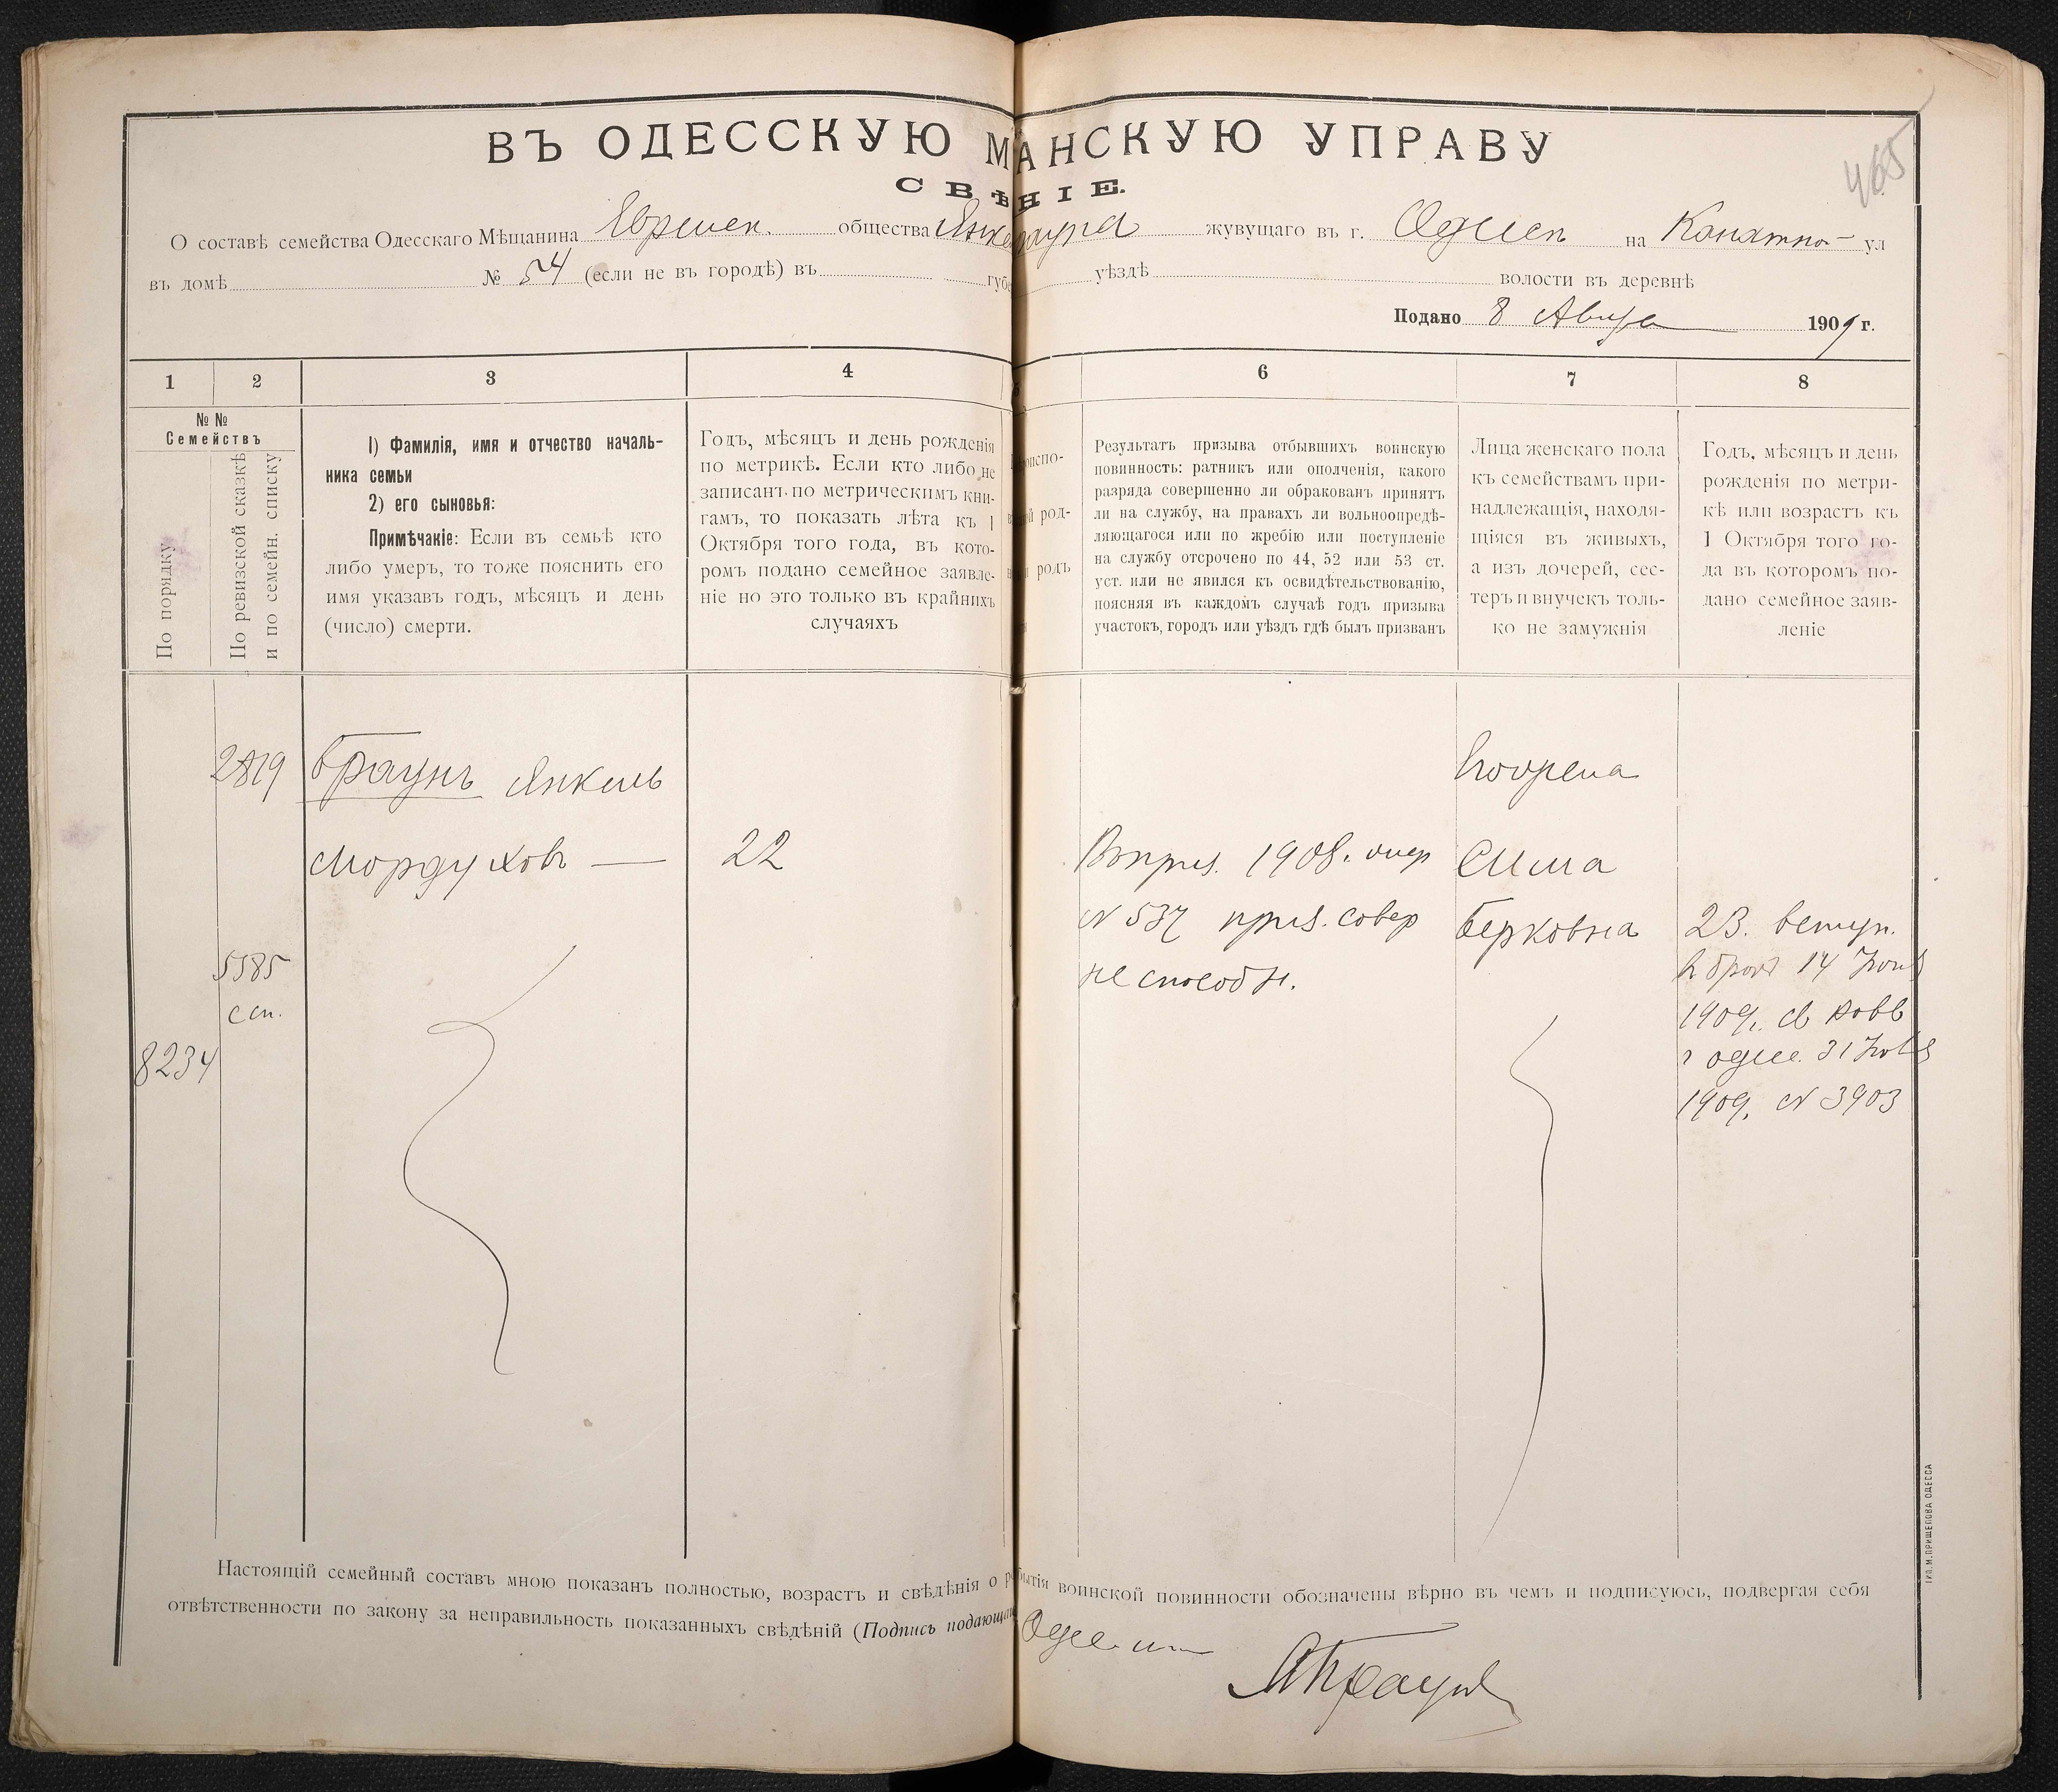 465
ВЪ ОДЕССКУЮ М АНСКУЮ УПРАВУ
СВѢ НІЕ.
О составѣ семейства Одесскаго Мѣщанина Еврейск. общества Янке Брауна жувущаго въ г. Одессѣ на Канатно ул
въ домѣ № 54 (если не въ городѣ) въ губе уѣздѣ волости въ деревнѣ
Подано 8 Августа 1909 г.
1 2 3 4 6 7 8
№ №
Семействъ
По порядку
По ревизской сказкѣ
и по семейн. списку
1) Фамилія, имя и отчество началь-
ника семьи
2) его сыновья:
Примѣчакіе: Если въ семьѣ кто
либо умеръ, то тоже пояснить его
имя указавъ годъ, мѣсяцъ и день
(число) смерти.
Годъ, мѣсяцъ и день рожденія
по метрикѣ. Если кто либо не
записанъ по метрическимъ кни-
гамъ, то показать лѣта къ 1
Октября того года, въ кото-
ромъ подано семейное заявле-
ніе но это только въ крайнихъ
случаяхъ
испо-
й род-
родъ
Результатъ призыва отбывшихъ воинскую
повинность: ратникъ или ополченія, какого
разряда совершенно ли обракованъ принятъ
ли на службу, на правахъ ли вольноопредѣ-
ляющагося или по жребію или поступленіе
на службу отсрочено по 44, 52 или 53 ст.
уст. или не явился къ освидѣтельствованію,
поясняя въ каждомъ случаѣ годъ призыва
участокъ, городъ или уѣздъ гдѣ былъ призванъ
Лица женскаго пола
къ семействамъ при-
надлежащія, находя-
щіяся въ живыхъ,
а изъ дочерей, сес-
теръ и внучекъ толь-
ко не замужнія
Годъ, мѣсяцъ и день
рожденія по метри-
кѣ или возрастъ къ
1 Октября того го-
да въ которомъ по-
дано семейное заяв-
леніе
2819 Браунъ Янкель
Мордухов — 22
Въ приз. 1908.
N 537 приз. совер
не способн.
Сима
Берковна 23. вступ.
в бракъ 14 Іюня
1909. св равв
г одес. 31 Іюля
1909. N 3903
5585
ссп.
8234
Настоящій семейный составъ мною показанъ полностью, возрастъ и свѣдѣнія о бытія воинской повинности обозначены вѣрно въ чемъ и подписуюсь, подвергая себя
отвѣтственности по закону за неправильность показанныхъ свѣдѣній (Подпись подающа Одес. м
Я Браунъ
ТИП. М. ПРИЩЕПОВА ОДЕССА